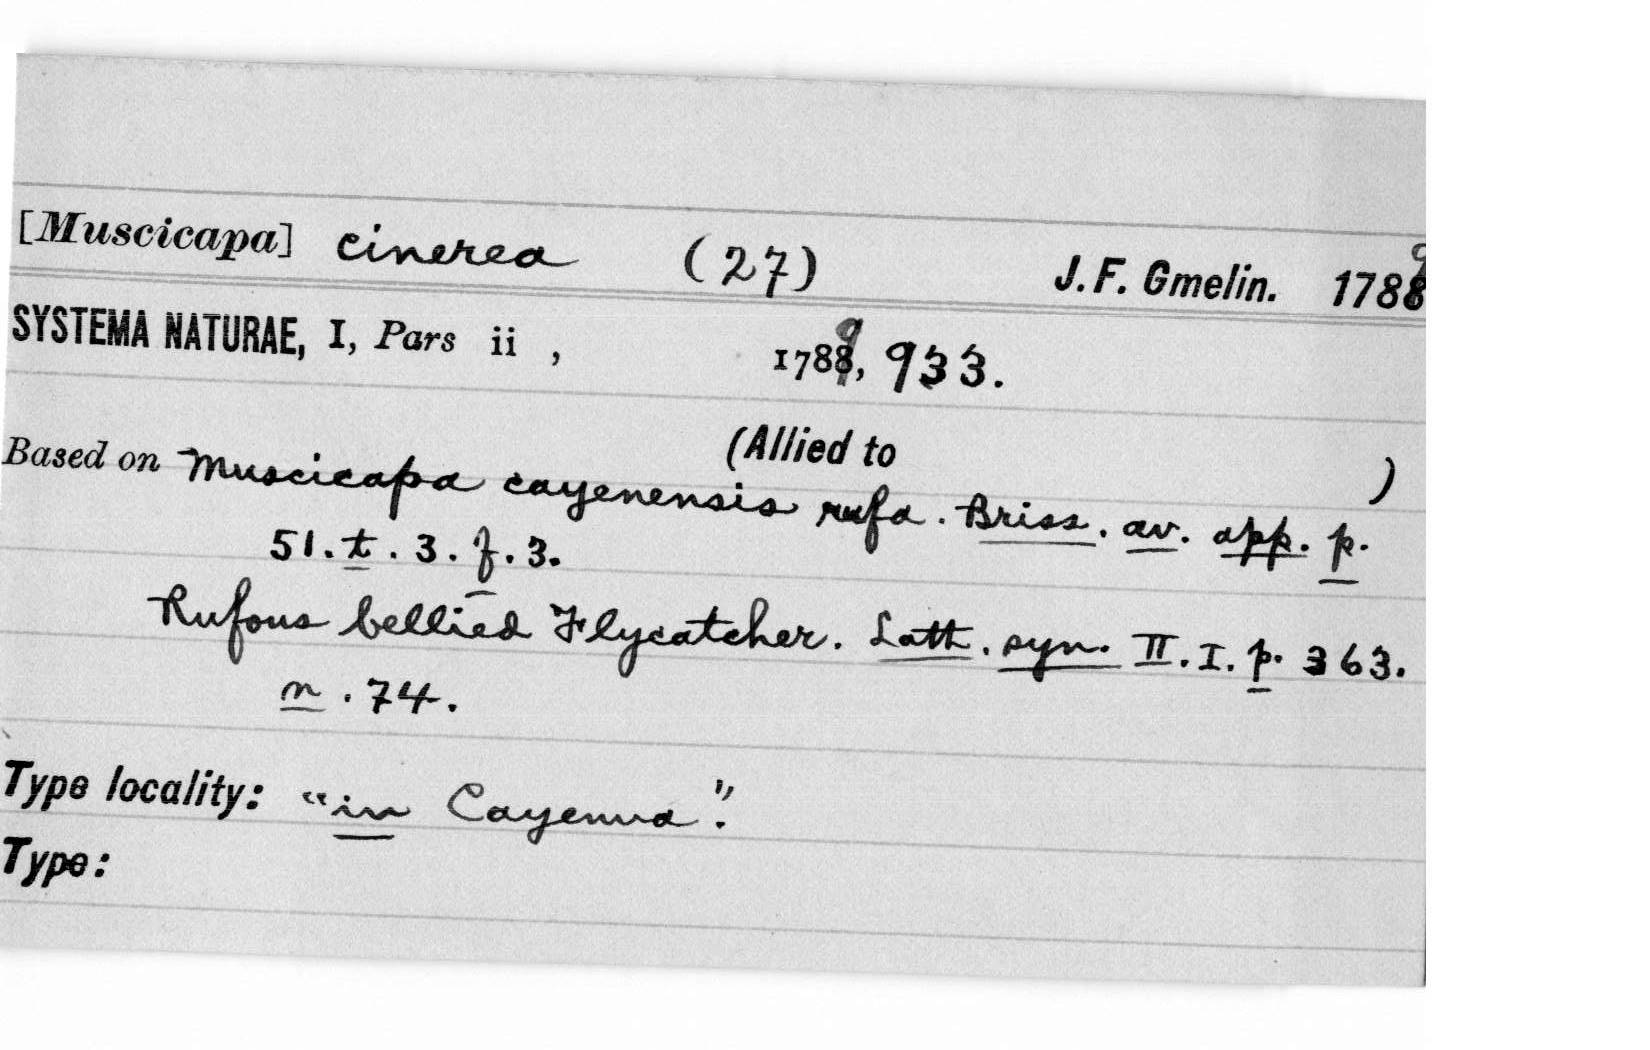 [Muscicapa] cinerea (27) J. F. Gmelin. 1789
SYSTEMA NATURAE, I, Pars ii , 1789, 933.
(Allied to )
Based on Muscicapa cayenensis rufa. Briss. av. app. p.
51. t. 3. f. 3.
Rufous bellied Flycatcher. Lath. syn. II. I. p. 363.
n. 74.
Type locality: "in Cayenna".
Type: